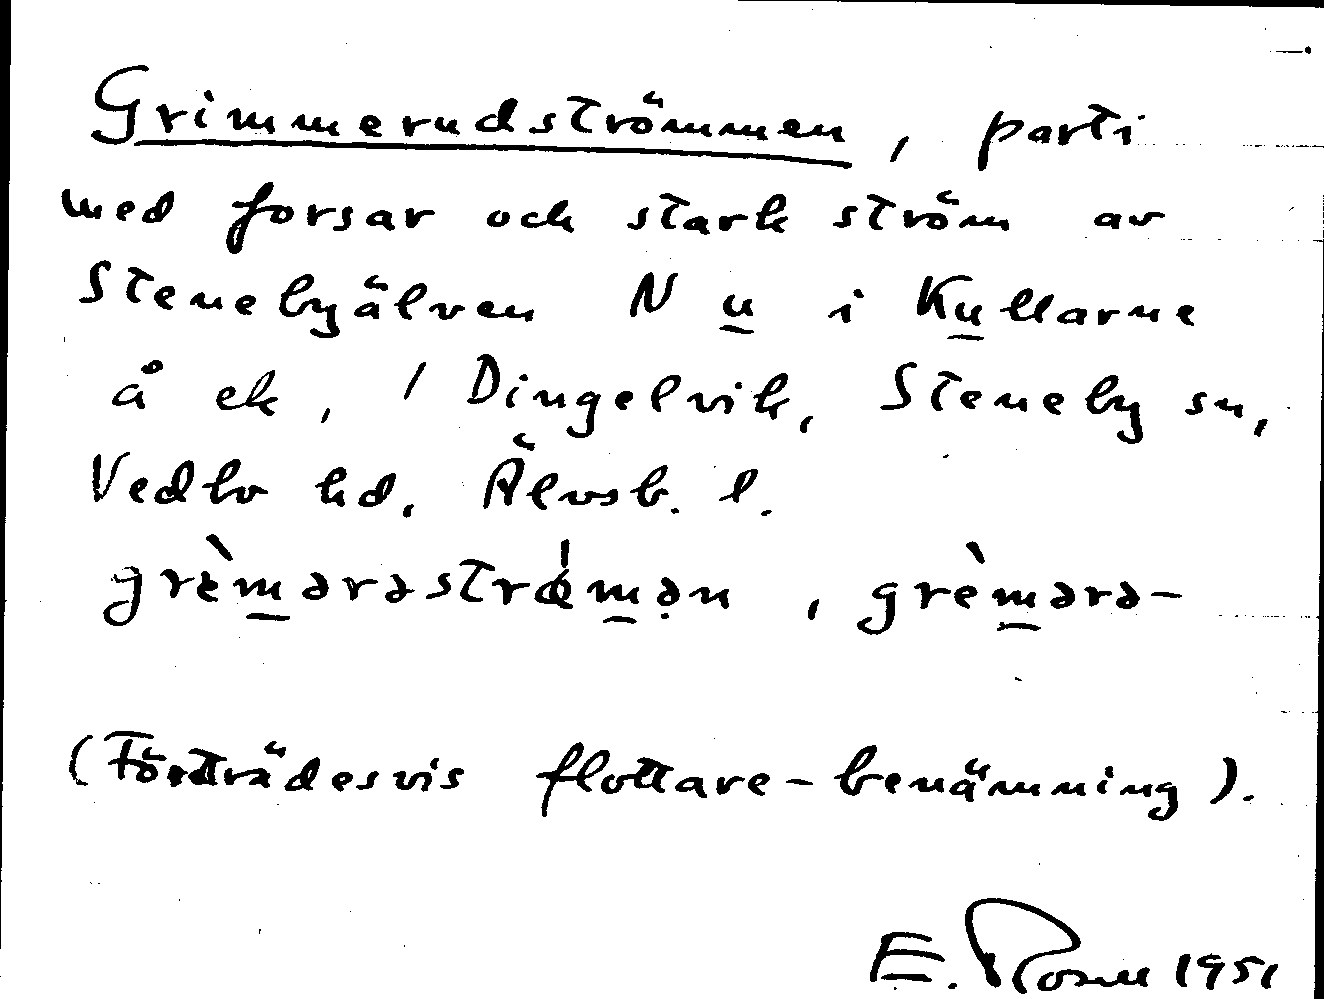 Grimmerudströmmen, parti
med forsar och stark ström av
Stenebyälven N u i Kullarne
å ek, / Dingelvik, Steneby sn,
Vedbo hd, Älvsb. l.
grèmərəstrǿmən, grèmərə-
(Företrädesvis flottare-benämning).
E. Rosell 1951